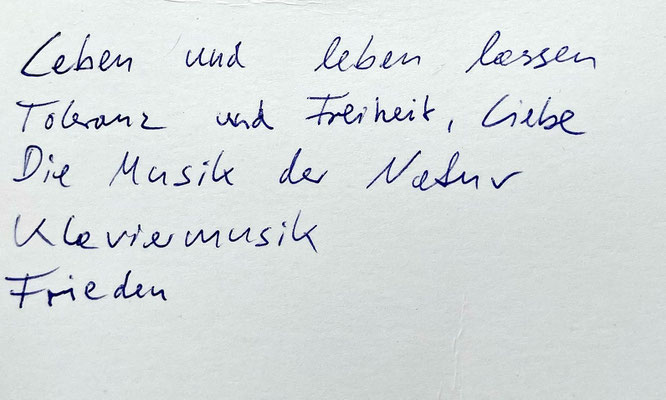 Leben und leben lassen
Toleranz und Freiheit, Liebe
Die Musik der Natur
Klaviermusik
Frieden